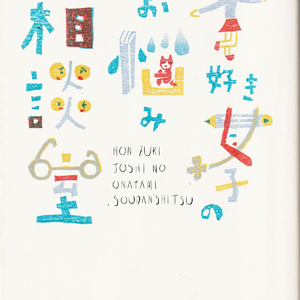 本好き女子の
お悩み
相談室
HON ZUKI
JOSHI NO
ONAYAMI
SOUDANSHITSU